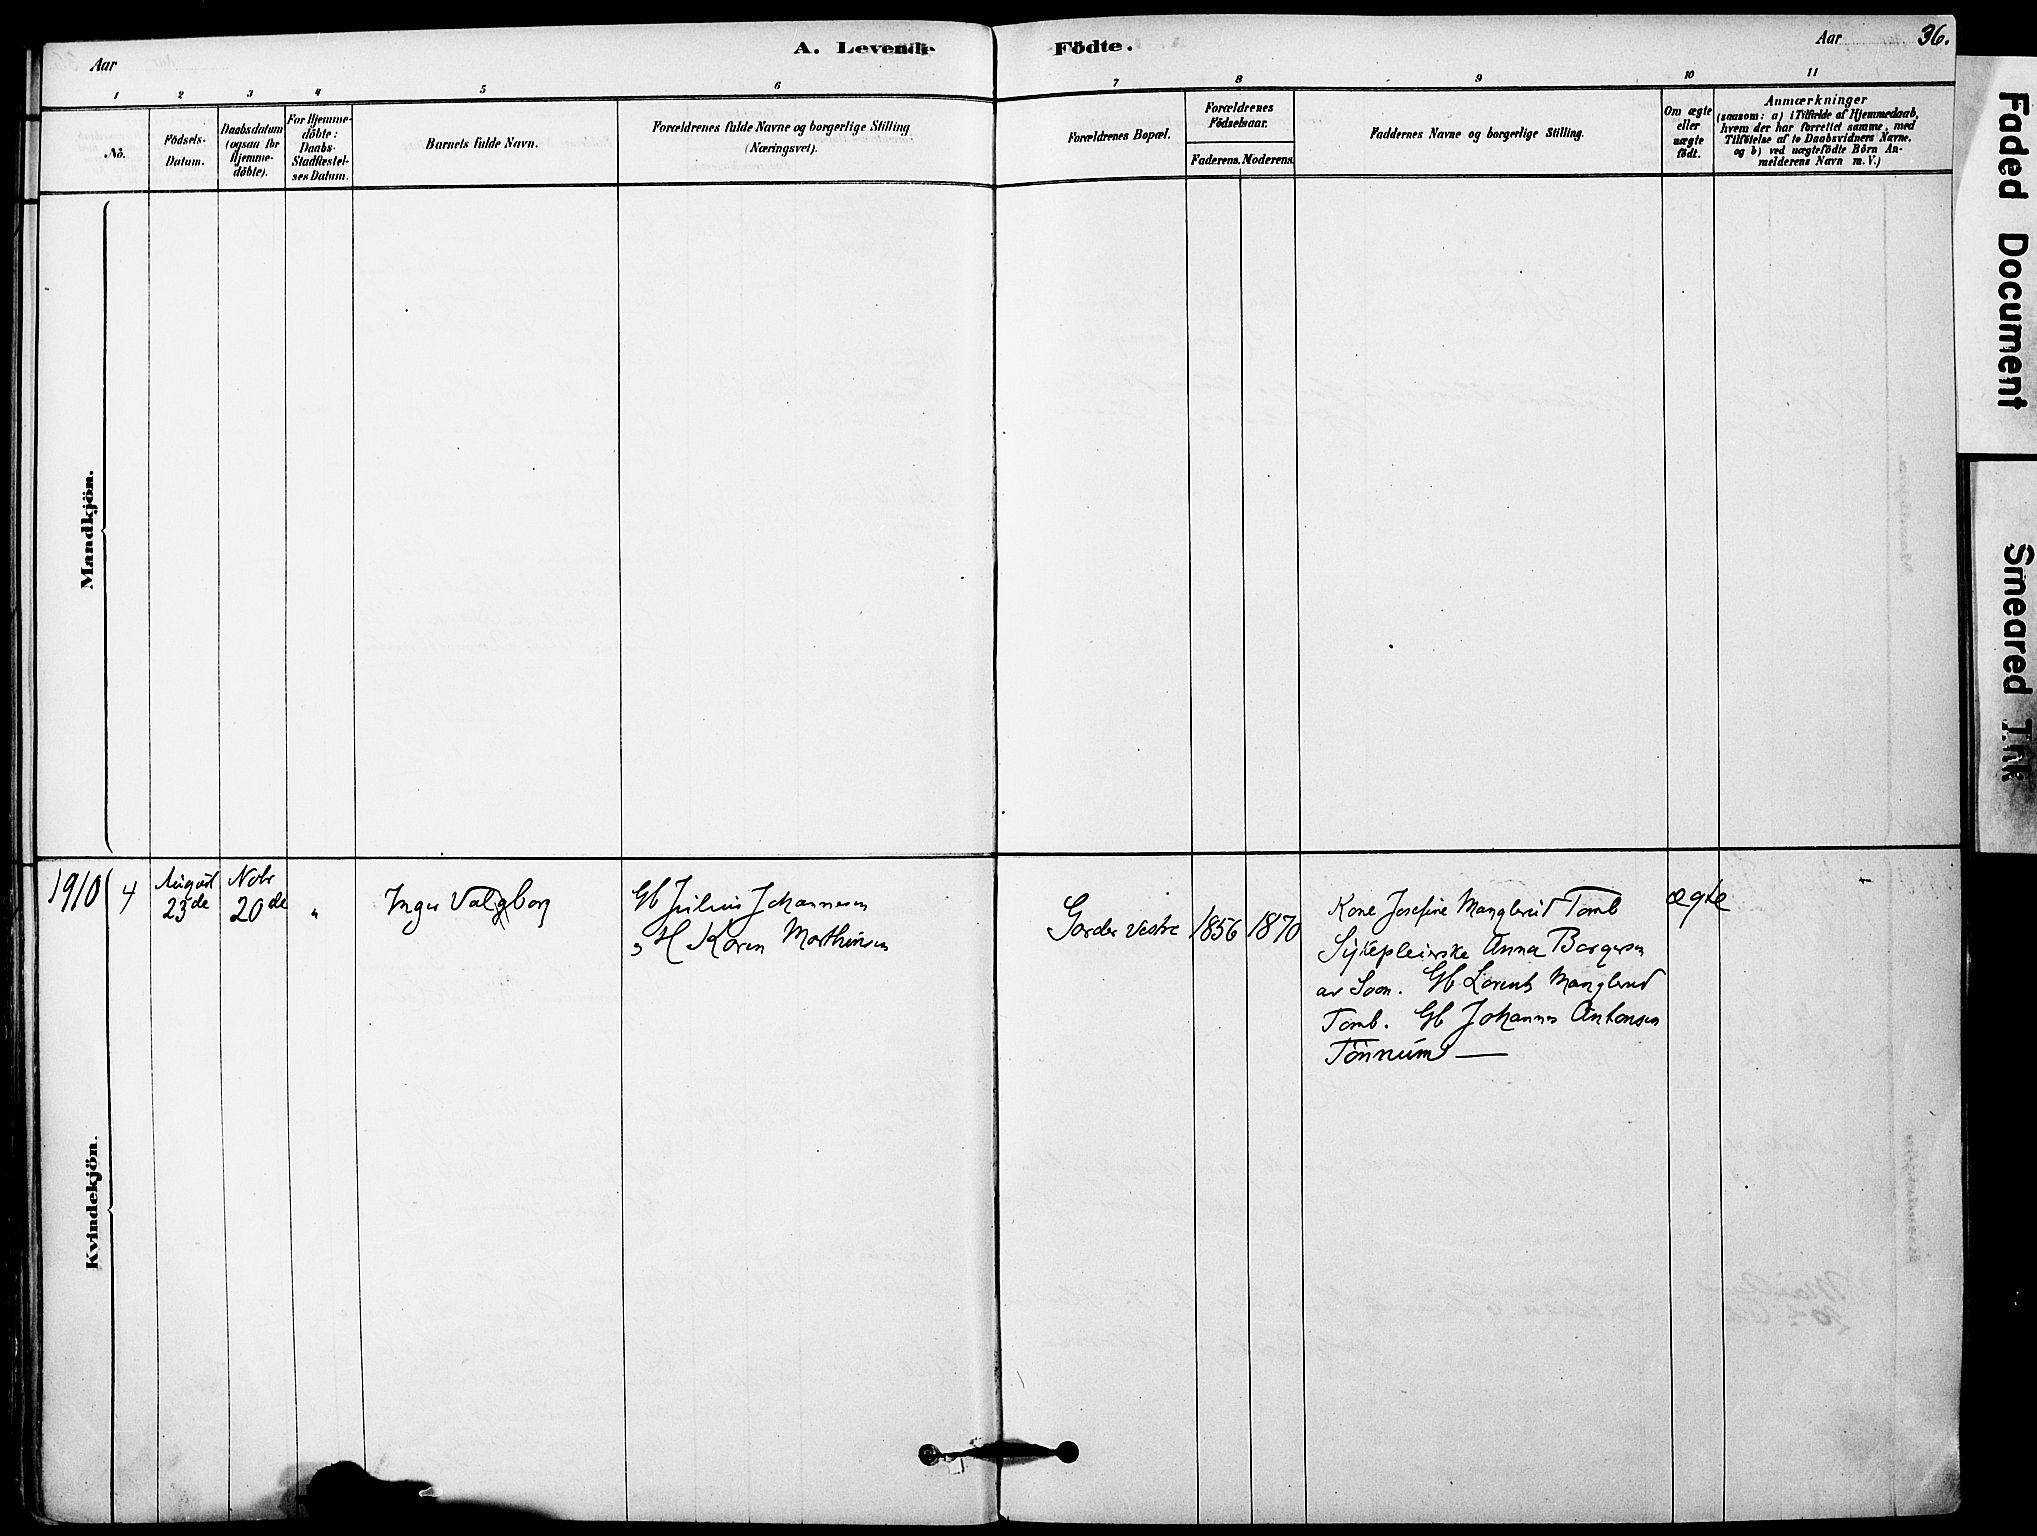 A. Levende Födte.
Aar
Aar 36.
1 2 3 4 5 6 7 8 9 10 11
No.
Födsels-
Datum.
Daabsdatum
(ogsaa for
Hjemme-
döbte).
For Hjemme-
döbte:
Daabs-
Stadfæstel-
ses Datum.
Barnets fulde Navn.
Forældrenes fulde Navne og borgerlige Stilling
(Næringsvei).
Forældrenes Bopæl.
Forældrenes
Födselsaar.
Faderens. Moderens.
Faddernes Navne og borgerlige Stilling.
Om ægte
eller
uægte
födt.
Anmærkninger
(saasom: a) i Tilfælde af Hjemmedaab,
hvem der har forrettet samme, med
Tilföielse af to Daabsvidners Navne,
og b) ved uægtefödte Börn An-
melderens Navn m. V.)
Mandkjön.
Kvindekjön.
1910 4
August
23de
Nobr
20de
"
Inger Valgborg
Gb Julius Johannesen
o H Karen Mathisen
Garder vestre
1856 1870
Kone Josefine Manglerud Tomb
Sykepleierske Anna Borgersen
av Soon. Gb Lorents Manglerud
Tomb. Gb Johannes Antonsen
Tönnum —
ægte
Faded Document
Smeared Ink